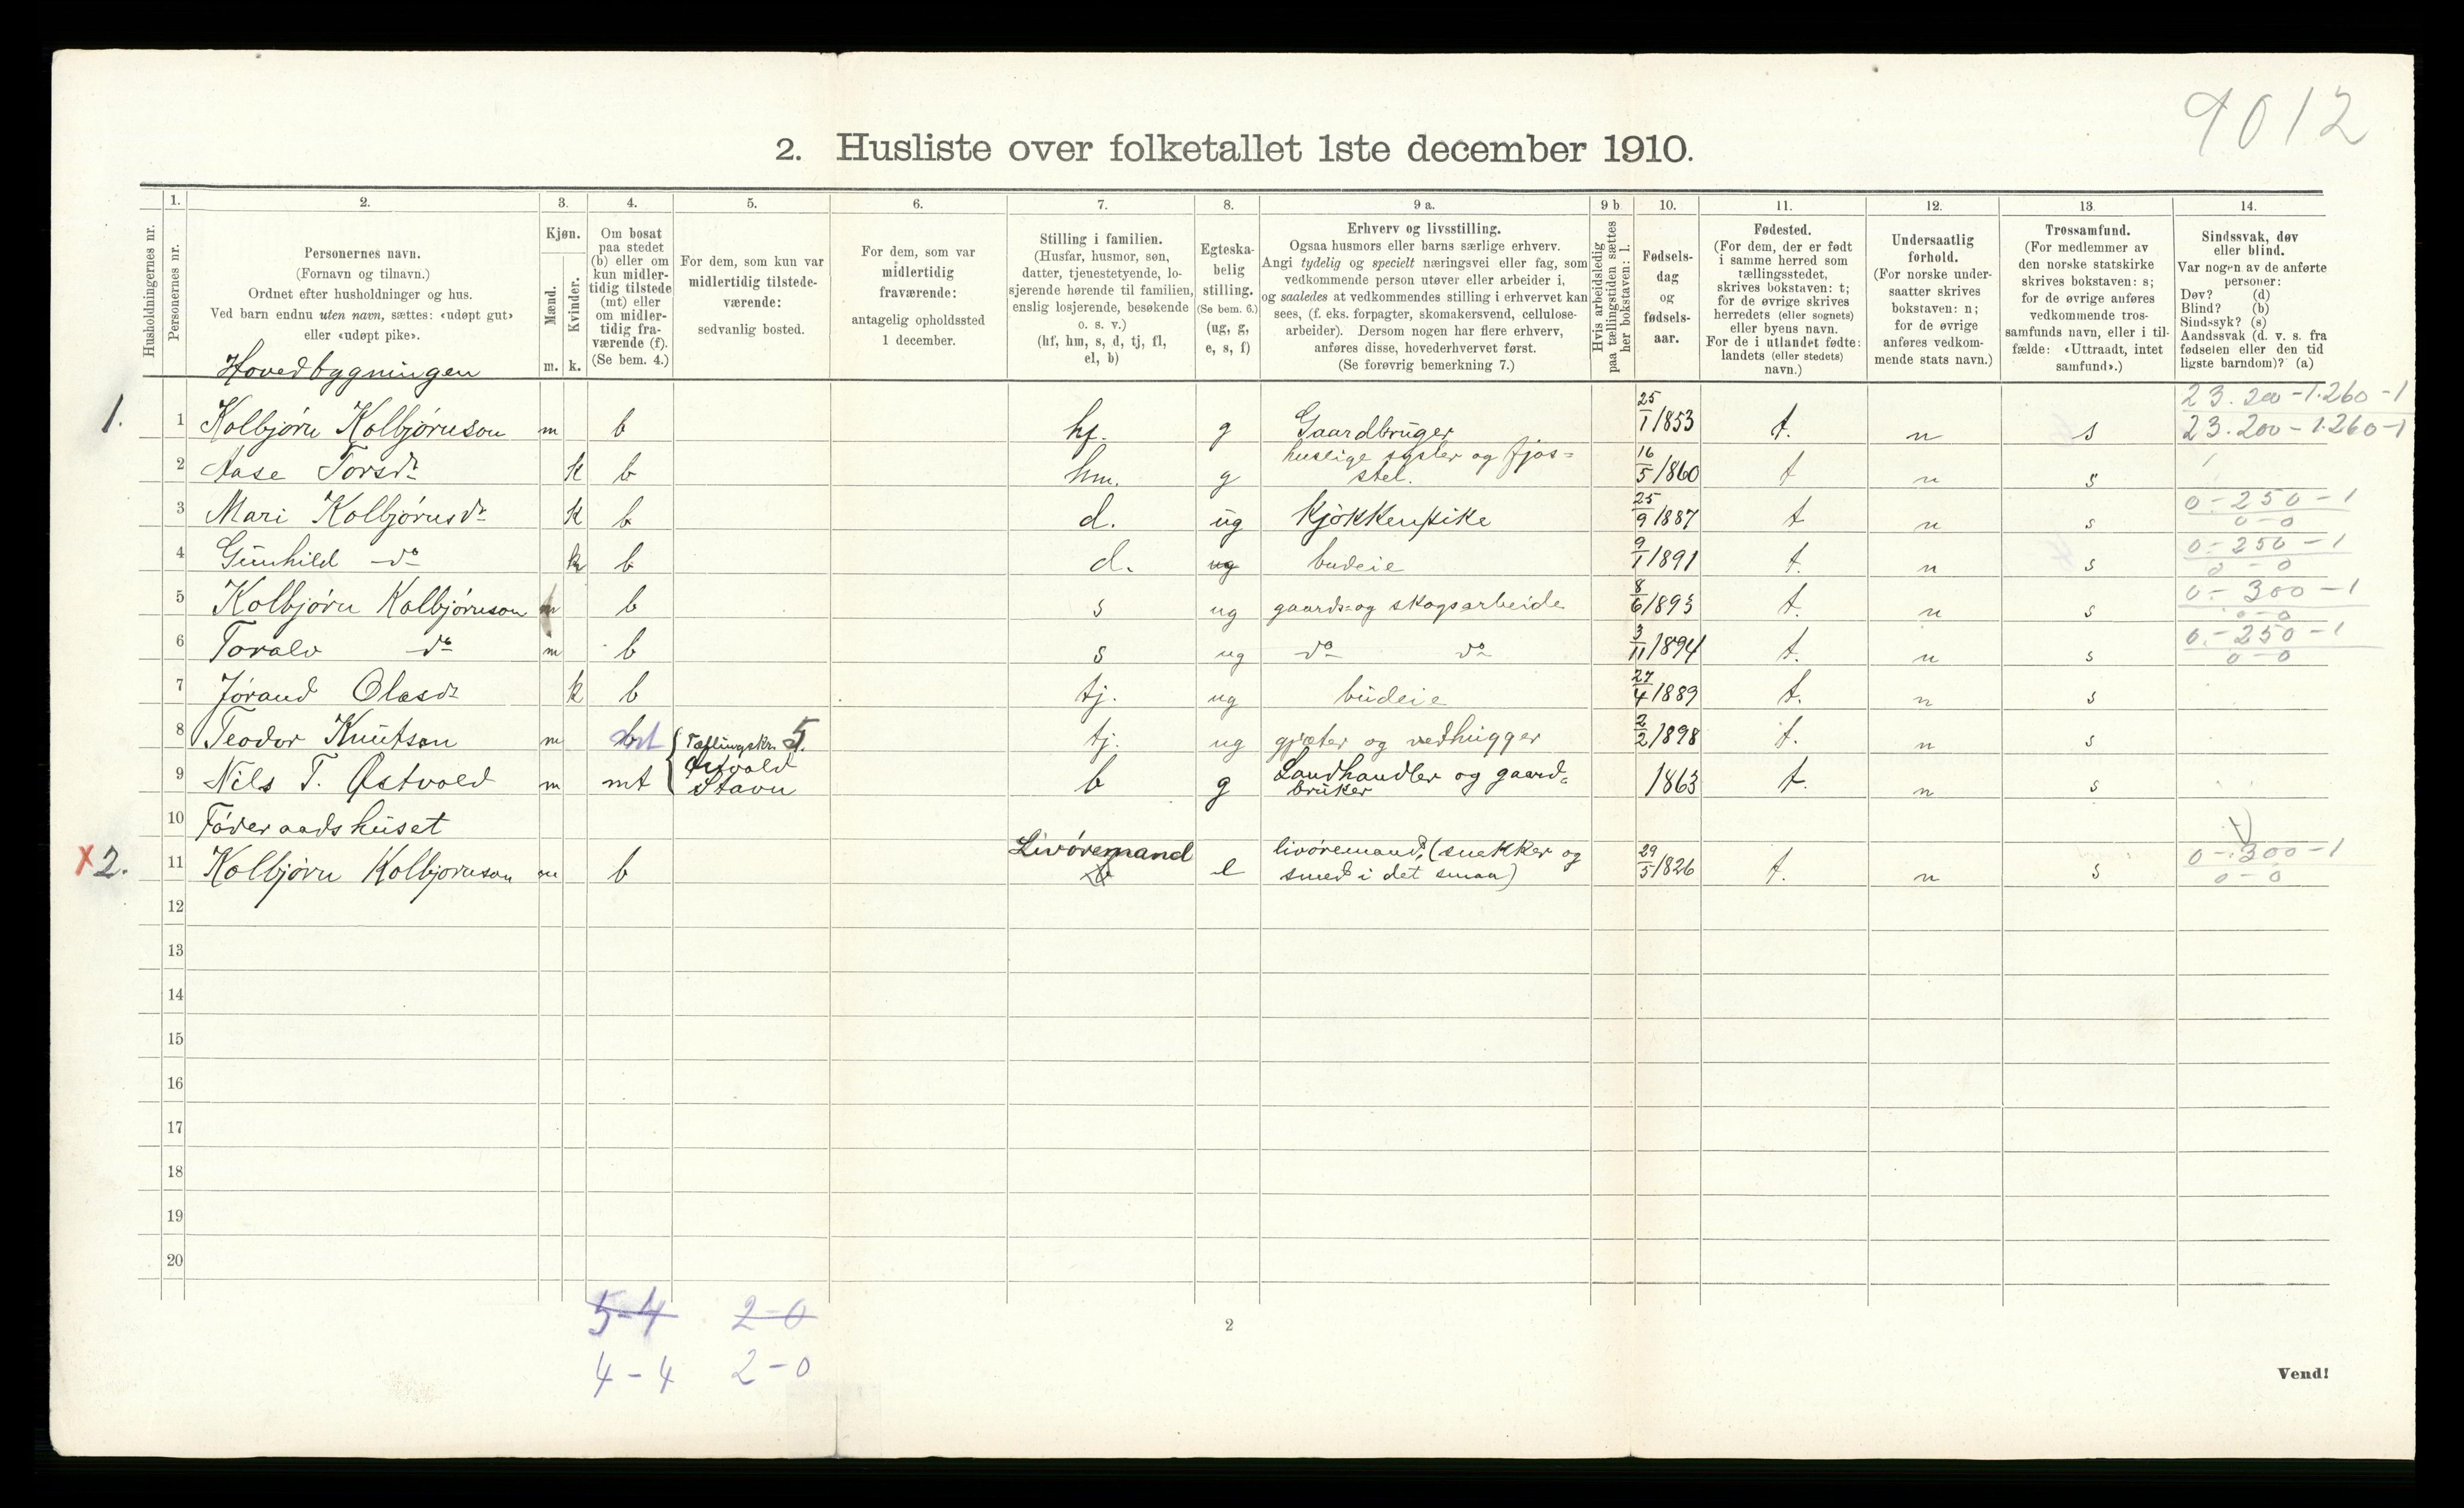 9012
2. Husliste over folketallet 1ste december 1910.
1. 2. 3. 4. 5. 6. 7. 8. 9 a. 9 b. 10. 11. 12. 13. 14.
Husholdningernes nr.
Personernes nr.
Personernes navn.
(Fornavn og tilnavn.)
Ordnet efter husholdninger og hus.
Ved barn endnu uten navn, sættes: «udøpt gut»
eller «udøpt pike».
Kjøn.
Mænd.
Kvinder.
m. k.
Om bosat
paa stedet
(b) eller om
kun midler-
tidig tilstede
(mt) eller
om midler-
tidig fra-
værende (f).
(Se bem. 4.)
For dem, som kun var
midlertidig tilstede-
værende:
sedvanlig bosted.
For dem, som var
midlertidig
fraværende:
antagelig opholdssted
1 december.
Stilling i familien.
(Husfar, husmor, søn,
datter, tjenestetyende, lo-
sjerende hørende til familien,
enslig losjerende, besøkende
o. s. v.)
(hf, hm, s, d, tj, fl,
el, b)
Egteska-
belig
stilling.
(Se bem. 6.)
(ug, g,
e, s, f)
Erhverv og livsstilling.
Ogsaa husmors eller barns særlige erhverv.
Angi tydelig og specielt næringsvei eller fag, som
vedkommende person utøver eller arbeider i,
og saaledes at vedkommendes stilling i erhvervet kan
sees, (f. eks. forpagter, skomakersvend, cellulose-
arbeider). Dersom nogen har flere erhverv,
anføres disse, hovederhvervet først.
(Se forøvrig bemerkning 7.)
Hvis arbeidsledig
paa tællingstiden sættes
her bokstaven: l.
Fødsels-
dag
og
fødsels-
aar.
Fødested.
(For dem, der er født
i samme herred som
tællingsstedet,
skrives bokstaven: t;
for de øvrige skrives
herredets (eller sognets)
eller byens navn.
For de i utlandet fødte:
landets (eller stedets)
navn.)
Undersaatlig
forhold.
(For norske under-
saatter skrives
bokstaven: n;
for de øvrige
anføres vedkom-
mende stats navn.)
Trossamfund.
(For medlemmer av
den norske statskirke
skrives bokstaven: s;
for de øvrige anføres
vedkommende tros-
samfunds navn, eller i til-
fælde: «Uttraadt, intet
samfund».)
Sindssvak, døv
eller blind.
Var nogen av de anførte
personer:
Døv? (d)
Blind? (b)
Sindssyk? (s)
Aandssvak (d. v. s. fra
fødselen eller den tid
ligste barndom)? (a)
Hovedbygningen
1. 1 Kolbjørn Kolbjørnson m b hf. g Gaardbruger 25/1 1853 t. n s 23.200-1.260-1
23.200-1.260-1
2 Aase Torsdr k b hm. g huslige sysler og fjøs=
stel. 16/5 1860 t n s
3 Mari Kolbjørnsdr k b d. ug Kjøkkenpike 25/9 1887 t n s 0-250-1
0-0
4 Gunhild do k b d. ug budeie 9/1 1891 t. n s 0-250-1
0-0
5 Kolbjørn Kolbjørnson m b s ug gaards=og skogsarbeide 8/6 1893 t. n s 0-300-1
0-0
6 Toralv do m b s ug do do 3/11 1894 t. n s 0-250-1
0-0
7 Jørand Olasdr k b tj. ug budeie 27/4 1889 t. n s
8 Teodor Knutson m mt Tællingskr. 5. tj. ug gjæter og vedhugger 2/2 1898 t. n s
Østvold
9 Nils T. Østvold m mt Stavn b g Landhandler og gaard=
bruker 1863 t. n s
10 Føderaadshuset
x 2. 11 Kolbjørn Kolbjørnson m b Livøremand e livøremand, (snekker og
smed i det smaa) 29/5 1826 t. n s 0-300-1
0-0
12
13
14
15
16
17
18
19
20
5-4 2-0
4-4 2-0
2
Vend!